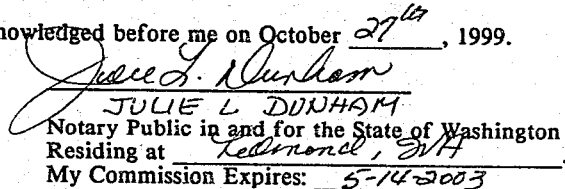 nowledged before me on October 27th, 1999.
Julie L. Dunham
JULIE L DUNHAM
Notary Public in and for the State of Washington
Residing at Redmond, WA.
My Commission Expires: 5-14-2003